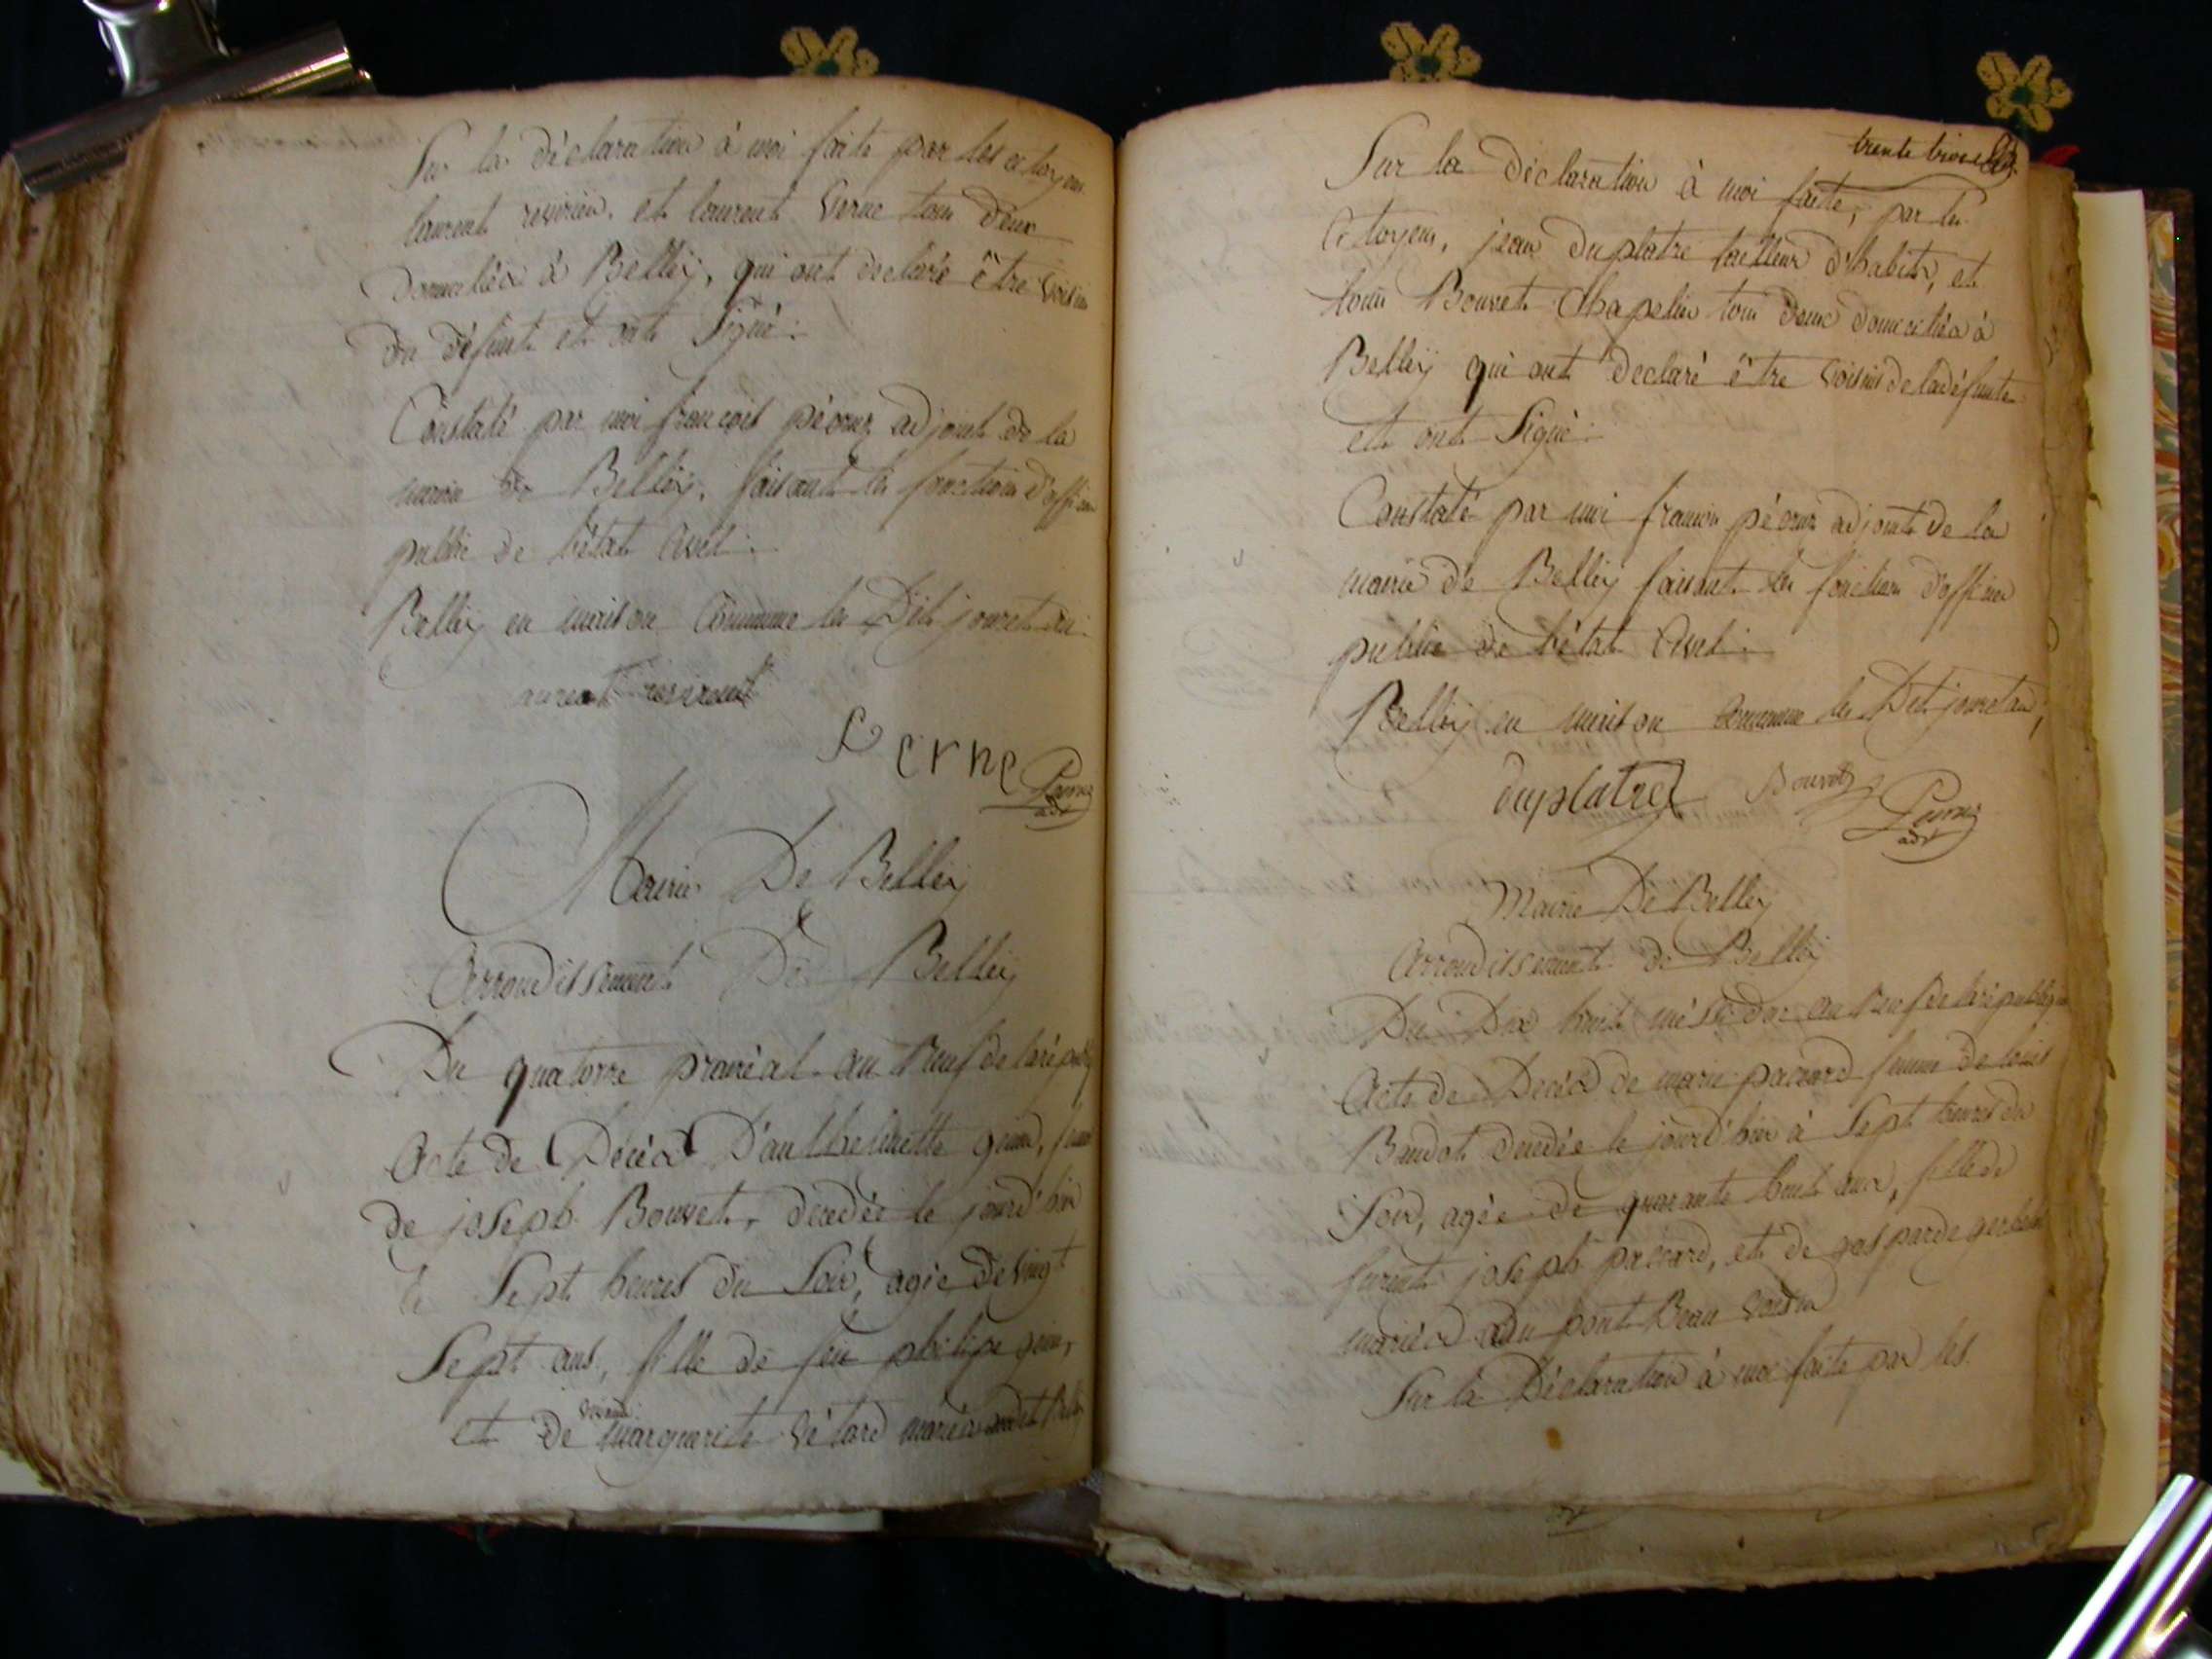 Sur la déclaration à moi faite par les citoyens
laurent revirieu, et laurent Verne tous deux
domiciliés à Belley, qui ont declaré être voisins
du défunt et ont Signé :
Constaté par moi françois pécour adjoint de la
mairie de Belley, faisant les fonctions d'officier
public de l'état Civil :
Belley en maison Commune les Dits jour et an :
Verne
adt
Mairie De Belley
Arrondissement De Belley
Du quatorze prairéal an Neuf de la répub
Acte de Décès D'anthelmette guin, femme
de joseph Bouvet, décédée le jourd'hui
à Sept heures du Soir, agée de vingt
Sept ans, fille de feu philipe guin,
et de marguerite vétard mariés
trente trois
Sur la déclaration à moi faite, par les
Citoyens, jean duplatre tailleur d'habits, et
louis Bouvet Chapelier tous deux domiciliés à
Belley qui ont declaré être voisins de la défunte
et ont Signé :
Constaté par moi françois pécour adjoint de la
mairie de Belley faisant les fonctions d'officier
public de l'état Civil :
Belley en maison Commune les Dits jour et an,
duplatre Bouvet
adt
Mairie De Belley
Arrondissement de Belley
Du Dix huit méssidor an Neuf de la république
Acte de Décès de marie pacard femme de louis
Baudot décédée le jourd'hui à Sept heures du
Soir, agée de quarante huit ans, fille de
joseph pacard, et de gasparde
mariés du pont Beau voisin
Sur la Déclaration à moi faite par les